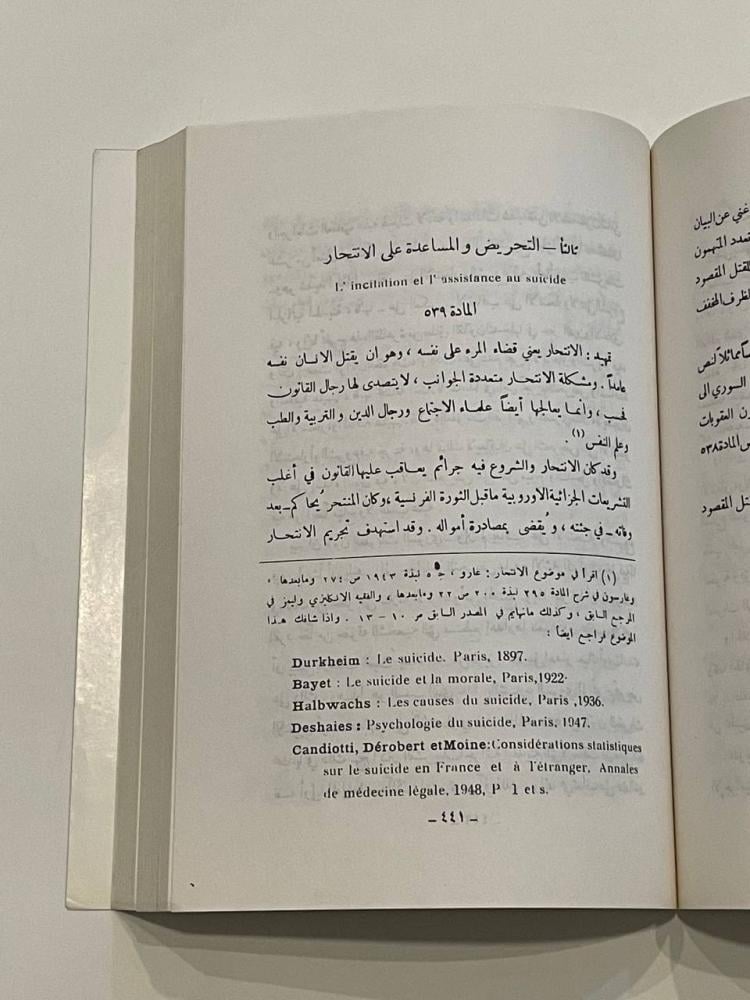 ثالثاً – التحريض والمساعدة على الانتحار
L' incitation et l' assistance au suicide
المادة ٥٣٩
تمهيد : الانتحار يعني قضاء المرء على نفسه ، وهو ان يقتل الانسان نفسه
عامداً . ومشكلة الانتحار متعددة الجوانب ، لا يتصدى لها رجال القانون
فحسب ، وانما يعالجها أيضاً علماء الاجتماع ورجال الدين والتربية والطب
وعلم النفس (١) .
وقد كان الانتحار والشروع فيه جرائم يعاقب عليها القانون في أغلب
التشريعات الجزائية الاوروبية ما قبل الثورة الفرنسية ، وكان المنتحر يُحاكم – بعد
وفاته – في جثته ، ويُقضى بمصادرة أمواله . وقد استهدف تجريم الانتحار
(١) اقرأ في موضوع الانتحار : غارو ، ج ٥ نبذة ١٩٤٣ ص ٢٧٤ ومابعدها ،
وغارسون في شرح المادة ٢٩٥ نبذة ٢٠٠ ص ٢٢ ومابعدها ، والفقيه الانكليزي وليمز في
المرجع السابق ، وكذلك مانهايم في المصدر السابق ص ١٠ – ١٣ . واذا شاقك هذا
الموضوع فراجع ايضاً :
Durkheim : Le suicide. Paris, 1897.
Bayet : Le suicide et la morale, Paris,1922.
Halbwachs : Les causes du suicide, Paris ,1936.
Deshaies : Psychologie du suicide, Paris, 1947.
Candiotti, Dérobert etMoine:Considérations statistiques
sur le suicide en France et à l'étranger, Annales
de médecine légale, 1948, P 1 et s.
– ٤٤١ –
غني عن البيان
تعدد المتهمون
للقتل المقصود
لظرف المخفف
مماثلاً لنص
السوري الى
ن العقوبات
المادة ٥٣٨
قتل المقصود